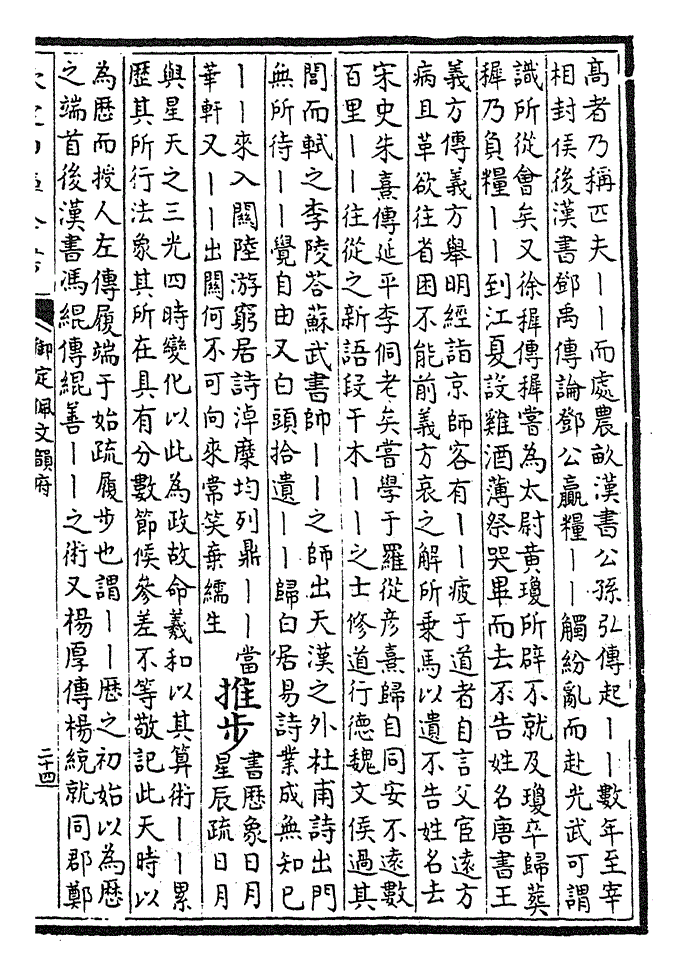 高者乃稱匹夫丨丨而處農畝漢書公孫弘傳起丨丨數年至宰
相封侯後漢書鄧禹傳論鄧公贏糧丨丨觸紛亂而赴光武可謂
識所從會矣又徐穉傳穉嘗為太尉黃瓊所辟不就及瓊卒歸葬
穉乃負糧丨丨到江夏設雞酒薄祭哭畢而去不告姓名唐書王
義方傳義方舉明經詣京師客有丨丨疲于道者自言父宦遠方
病且革欲往省困不能前義方哀之解所乘馬以遺不告姓名去
宋史朱熹傳延平李侗老矣嘗學于羅從彥熹歸自同安不遠數
百里丨丨往從之新語段干木丨丨之士修道行德魏文侯過其
閭而軾之李陵荅蘇武書帥丨丨之師出天漢之外杜甫詩出門
無所待丨丨覺自由又白頭拾遺丨丨歸白居易詩業成無知已
丨丨來入關陸游窮居詩淖糜均列鼎丨丨當
華軒又丨丨出關何不可向來常笑棄繻生
推步
書歷象日月
星辰疏日月
與星天之三光四時變化以此為政故命羲和以其算術丨丨累
歷其所行法象其所在具有分數節候參差不等敬記此天時以
為歷而授人左傳履端于始疏履步也謂丨丨歷之初始以為歷
之端首後漢書馮緄傳緄善丨丨之術又楊厚傳楊統就同郡鄭
御定佩文韻府
二十四